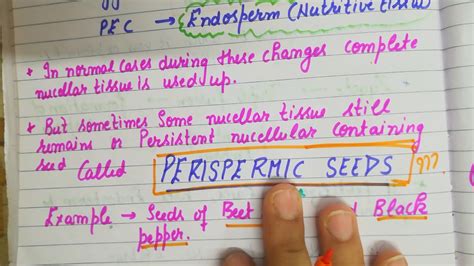 PEC → Endosperm (Nutritive tissue)
* In normal cases during these changes complete
nucellar tissue is used up.
* But sometimes Some nucellar tissue still
remains or Persistent nucellular containing
seed Called PERISPERMIC SEEDS
Example → Seeds of Beet Black
pepper.